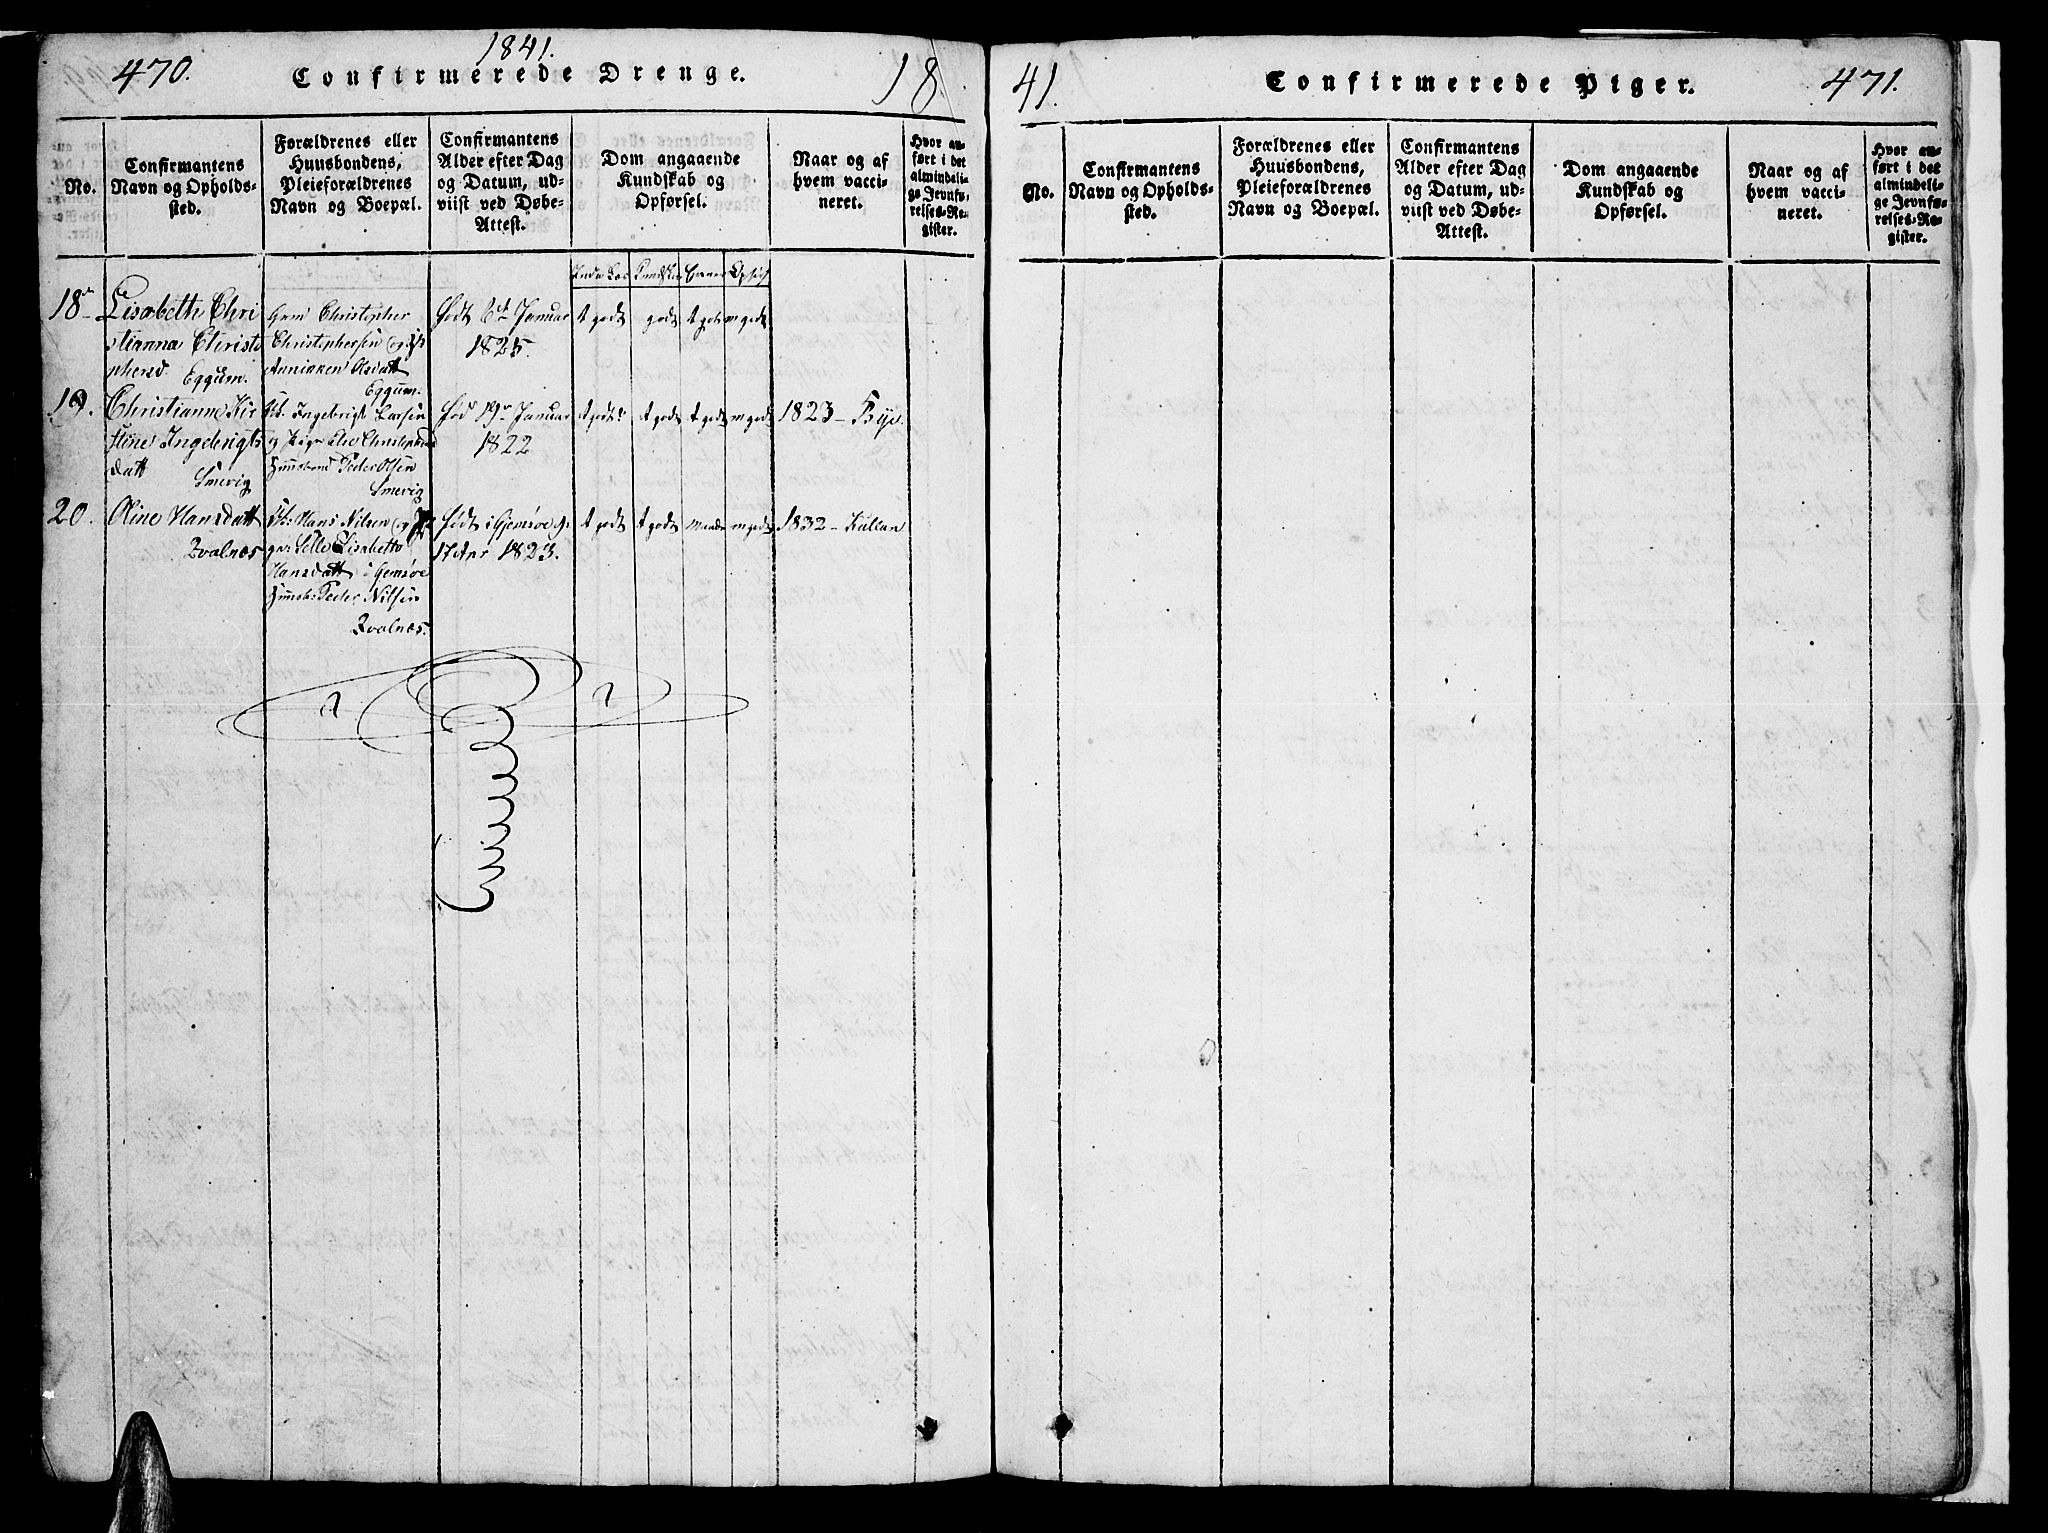 470.
1841.
Confirmerede Drenge.
18
No.
Confirmantens
Navn og Opholds-
sted.
Forældrenes eller
Huusbondens,
Pleieforældrenes
Navn og Boepæl.
Confirmantens
Alder efter Dag
og Datum, ud-
viist ved Døbe-
Attest.
Dom angaaende
Kundskab og
Opførsel.
Naar og af
hvem vacci-
neret.
Hvor an-
ført i det
almindeli-
ge Jevnfø-
relses-Re-
gister.
18
Lisabeth Chri
stianna Christo
phersd. Eggum.
Christopher
Christophersen og
Anniken Olsdatt
Eggum.
Født 6t Januar
1825.
t godt godt t godt m godt
19.
Christianne Kir
stine Ingebrigts
datt
Smevig
Ingebrigt Larsen
og Pige Christophersd
Huusbond Peder Olsen
Smevig
Født 19 Januar
1822
t godt t godt t godt m godt
1823 - Bye.
20.
Oline Hansdatt
Qvalnes
Hans Nilsen og Pi
ge Lisabetha
Hansdatt i Gimsøe
Huusb. Peder Nilsen
Qvalnes.
Født i Gimsøe
17 Apr 1823.
t godt t godt m godt
1832 - Killan
41.
Confirmerede Piger.
471.
No.
Confirmantens
Navn og Opholds-
sted.
Forældrenes eller
Huusbondens,
Pleieforældrenes
Navn og Boepæl.
Confirmantens
Alder efter Dag
og Datum, ud-
viist ved Døbe-
Attest.
Dom angaaende
Kundskab og
Opførsel.
Naar og af
hvem vacci-
neret.
Hvor an-
ført i det
almindeli-
ge Jevnfø-
relses-Re-
gister.